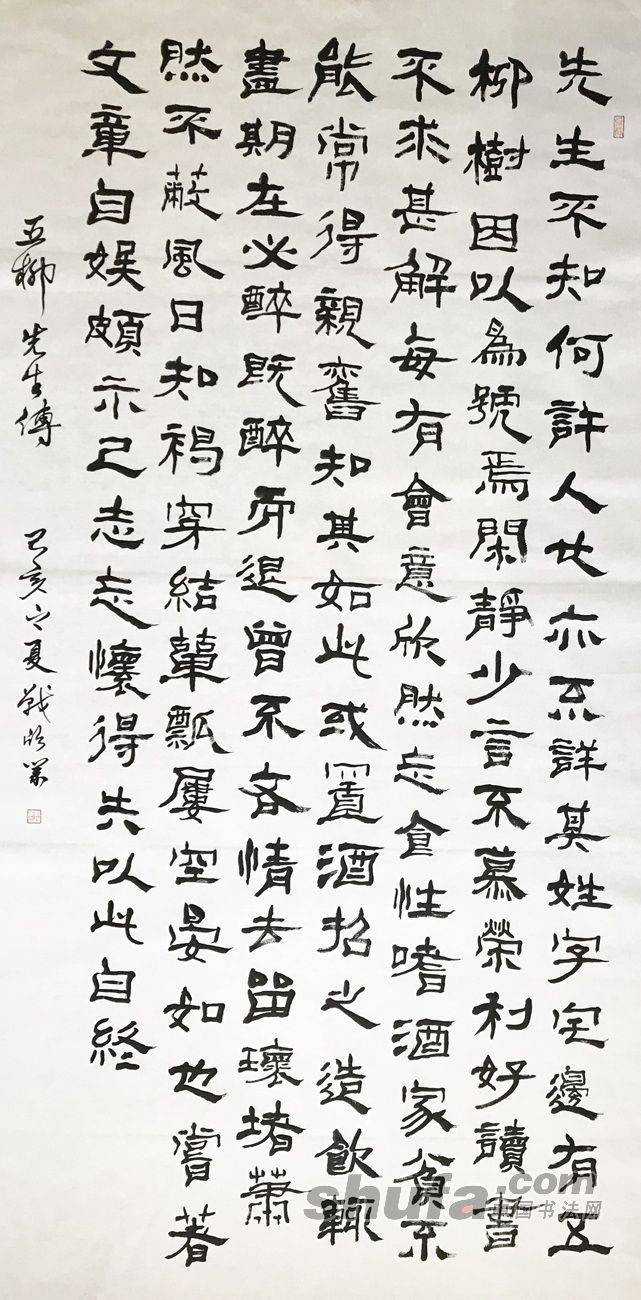 先生不知何許人也亦不詳其姓字宅邊有五
柳樹因以為號焉閑靜少言不慕榮利好讀書
不求甚解每有會意欣然忘食性嗜酒家貧不
能常得親舊知其如此或置酒招之造飲輒
盡期在必醉既醉而退曾不吝情去留環堵蕭
然不蔽風日知褐穿結簞瓢屢空晏如也嘗著
文章自娛頗示己志忘懷得失以此自終
五柳先生傳 己亥之夏
shufa.com
中国书法网